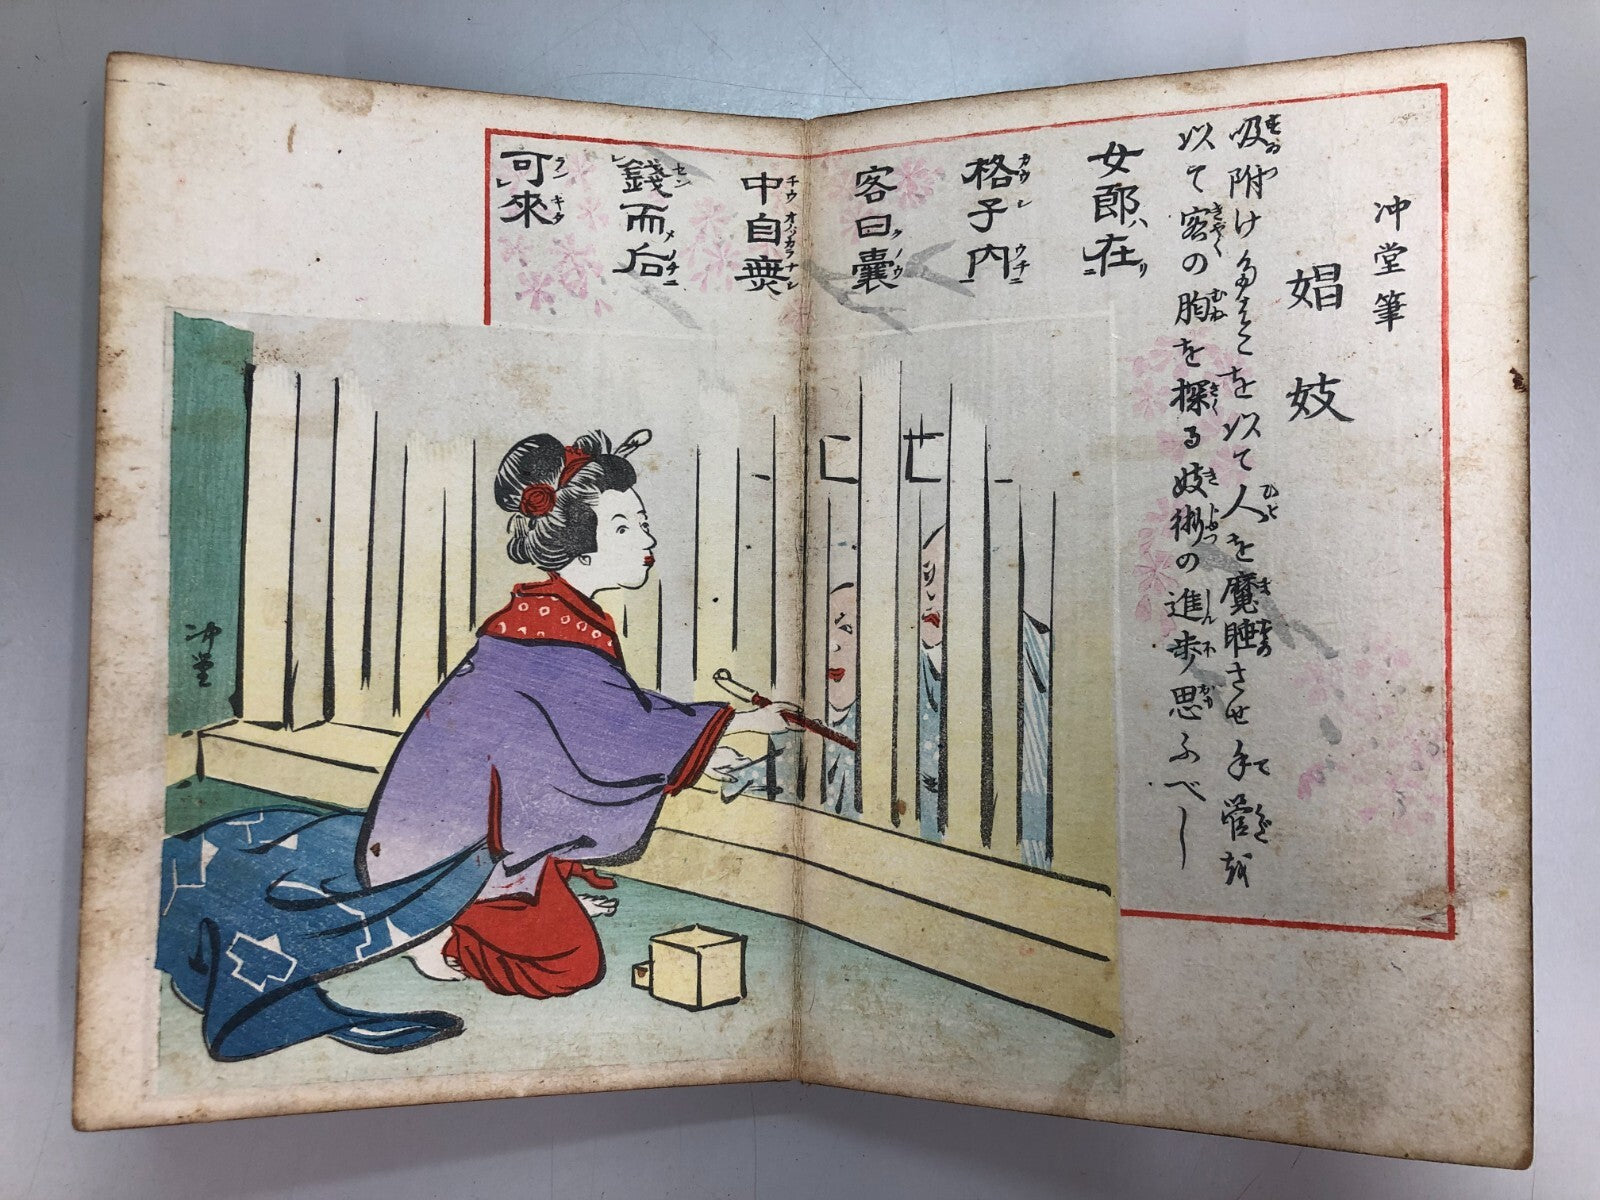 冲堂筆
娼妓
吸附けたばこを以て人を魔睡させ手管を
以て客の胸を探る妓術の進歩思ふべし
女郎在
格子内
客曰嚢
中自無
銭而后
可来
冲堂